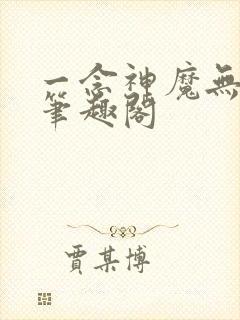 一念神魔無
筆趣閣
賈某博